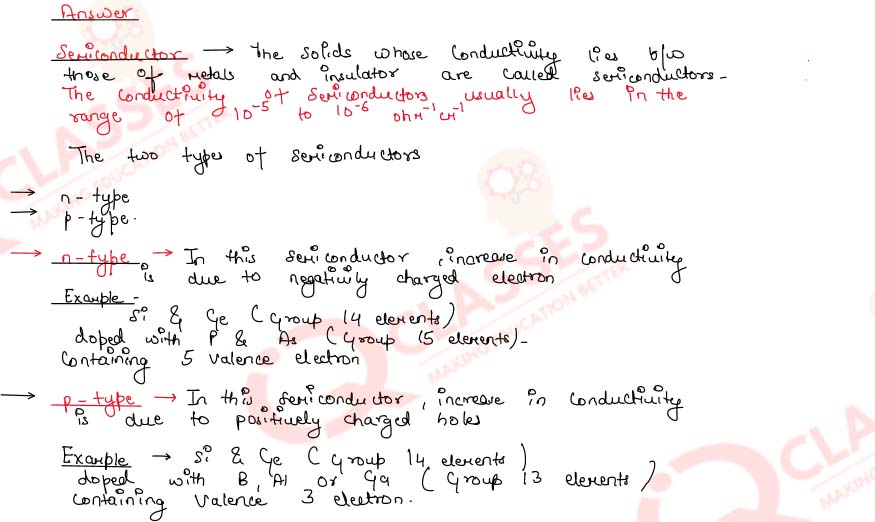 Answer
Semiconductor → The solids whose conductivity lies b/w
those of metals and insulator are called semiconductors-
The conductivity of semiconductors usually lies in the
range of 10⁻⁵ to 10⁻⁶ ohm⁻¹cm⁻¹
The two types of semiconductors
→ n-type
→ p-type.
→ n-type → In this semiconductor, increase in conductivity
is due to negativily charged electron
Example-
Si & Ge (Group 14 elements)
doped with P & As (Group 15 elements)-
Containing 5 valence electron
→ p-type → In this semiconductor, increase in conductivity
is due to positively charged holes
Example → Si & Ge (Group 14 elements)
doped with B, Al or Ga (Group 13 elements)
containing valence 3 electron.
CLASSES
MAKING EDUCATION BETTER
CLASSES
MAKING EDUCATION BETTER
CLA
MAKING